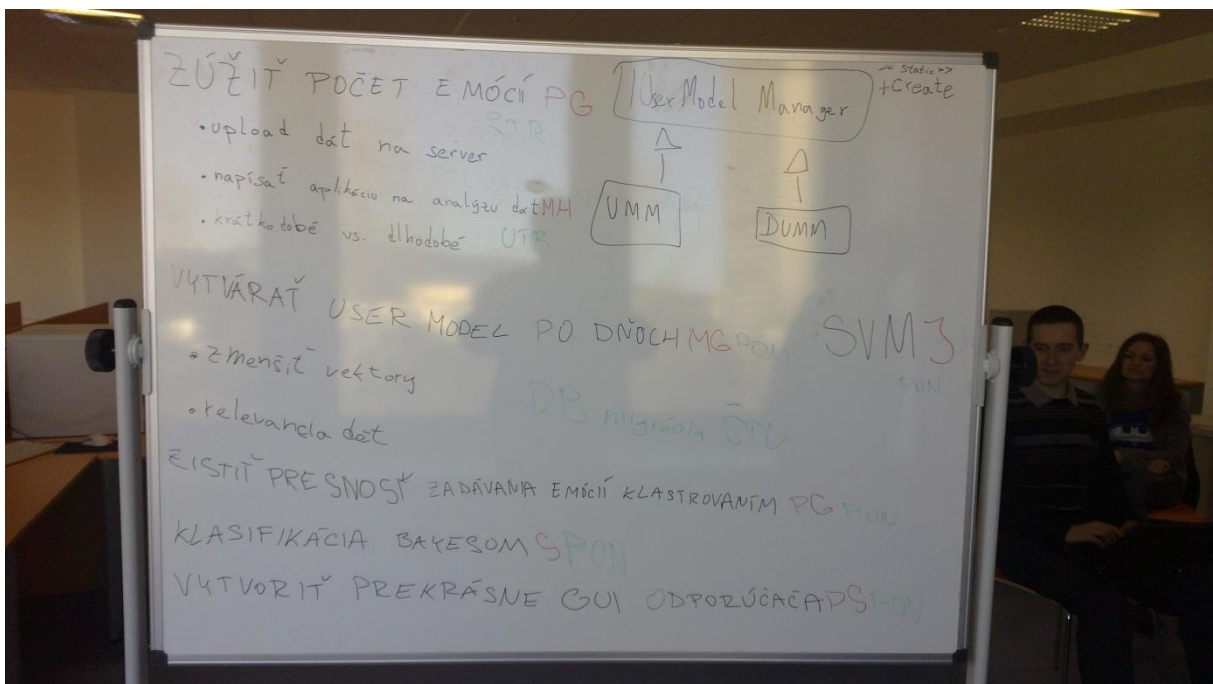 ZÚŽIŤ POČET EMÓCIÍ PG
STR
• upload dát na server
• napísať aplikáciu na analýzu dát MH
• krátkodobé vs. dlhodobé UTR
IUserModel Manager
<<static>>
+Create
UMM
DUMM
VYTVÁRAŤ USER MODEL PO DŇOCH MG PON
• zmenšiť vektory
• relevancia dát
SVM J
PON
DB migrácia ŠTV
ZISTIŤ PRESNOSŤ ZADÁVANIA EMÓCIÍ KLASTROVANÍM PG PON
KLASIFIKÁCIA BAYESOM S PON
VYTVORIŤ PREKRÁSNE GUI ODPORÚČAČA DS PON